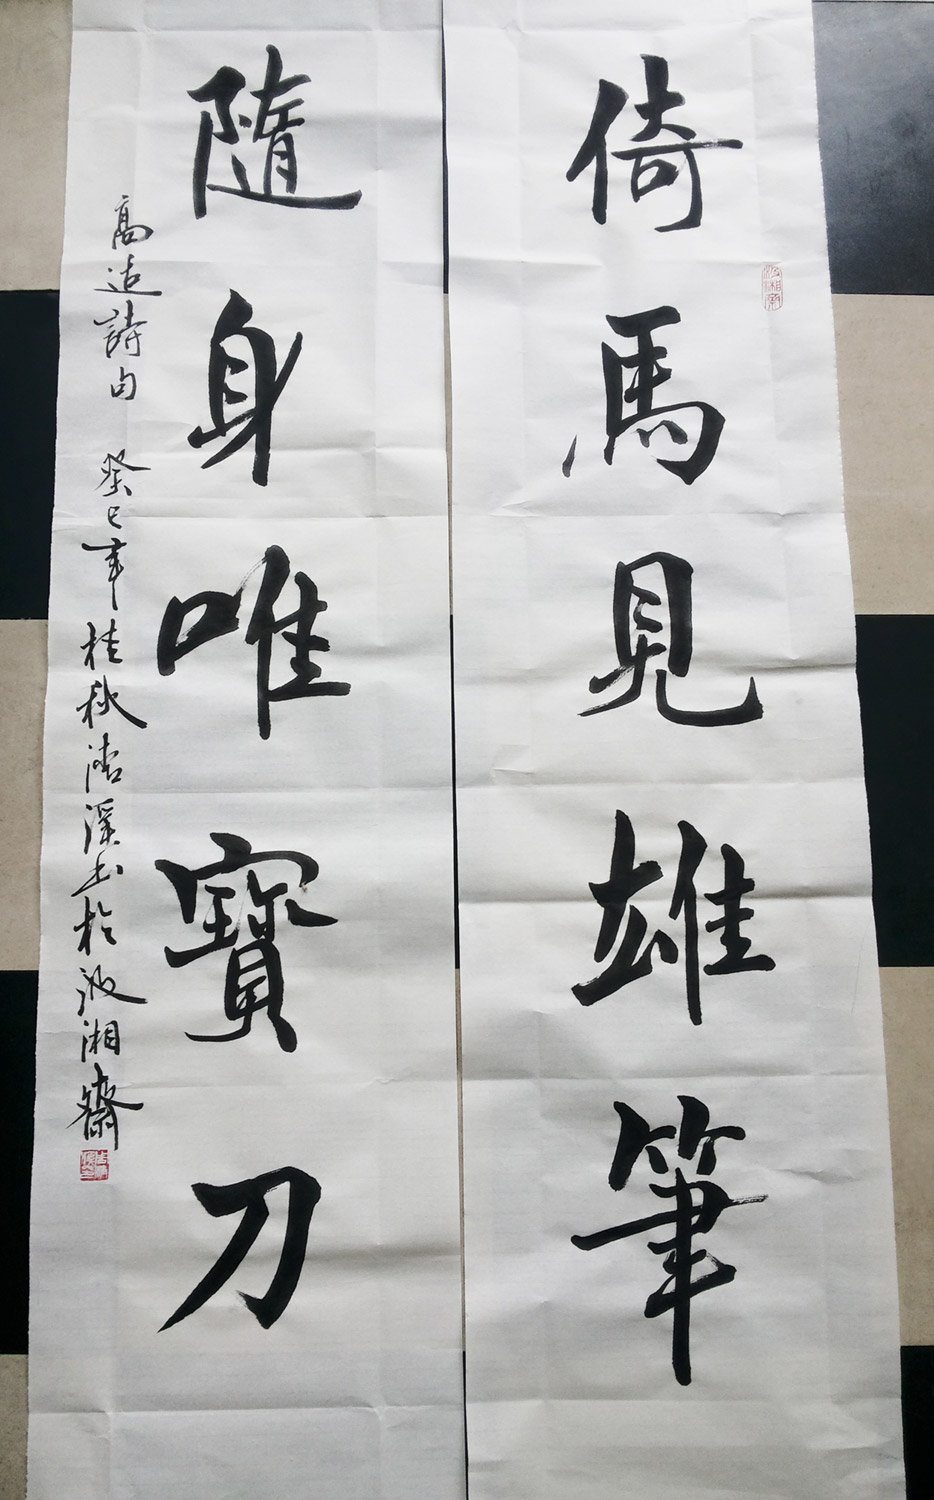 倚馬見雄筆
隨身唯寶刀
高适詩句 癸巳年桂秋浯溪書於汲湘齋
汲湘齋